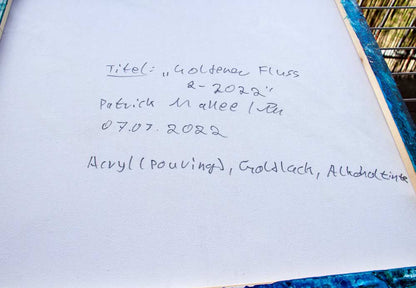 Titel: „Goldener Fluss
2-2022"
Patrick Mallee /
07.07.2022
Acryl (Pouring), Goldlack, Alkoholtinte